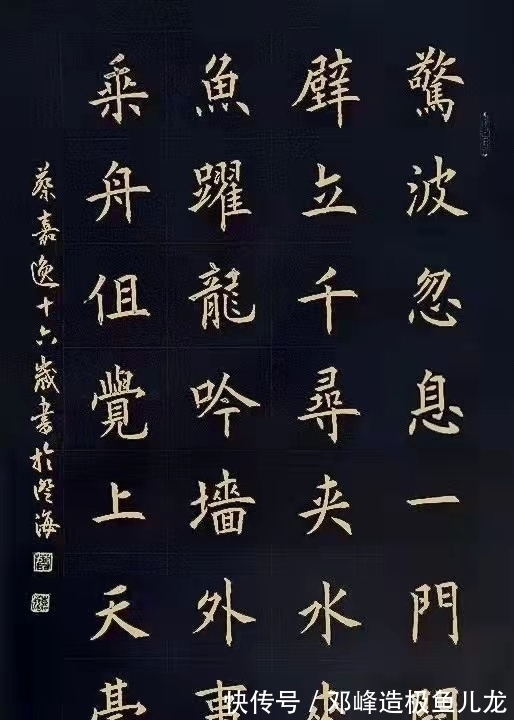 驚波忽息一門
壁立千尋夾水
魚躍龍吟墻外事
乘舟但覺上天
蔡嘉逸十六歲書於澄海
快传号 / 邓峰造极鱼儿龙